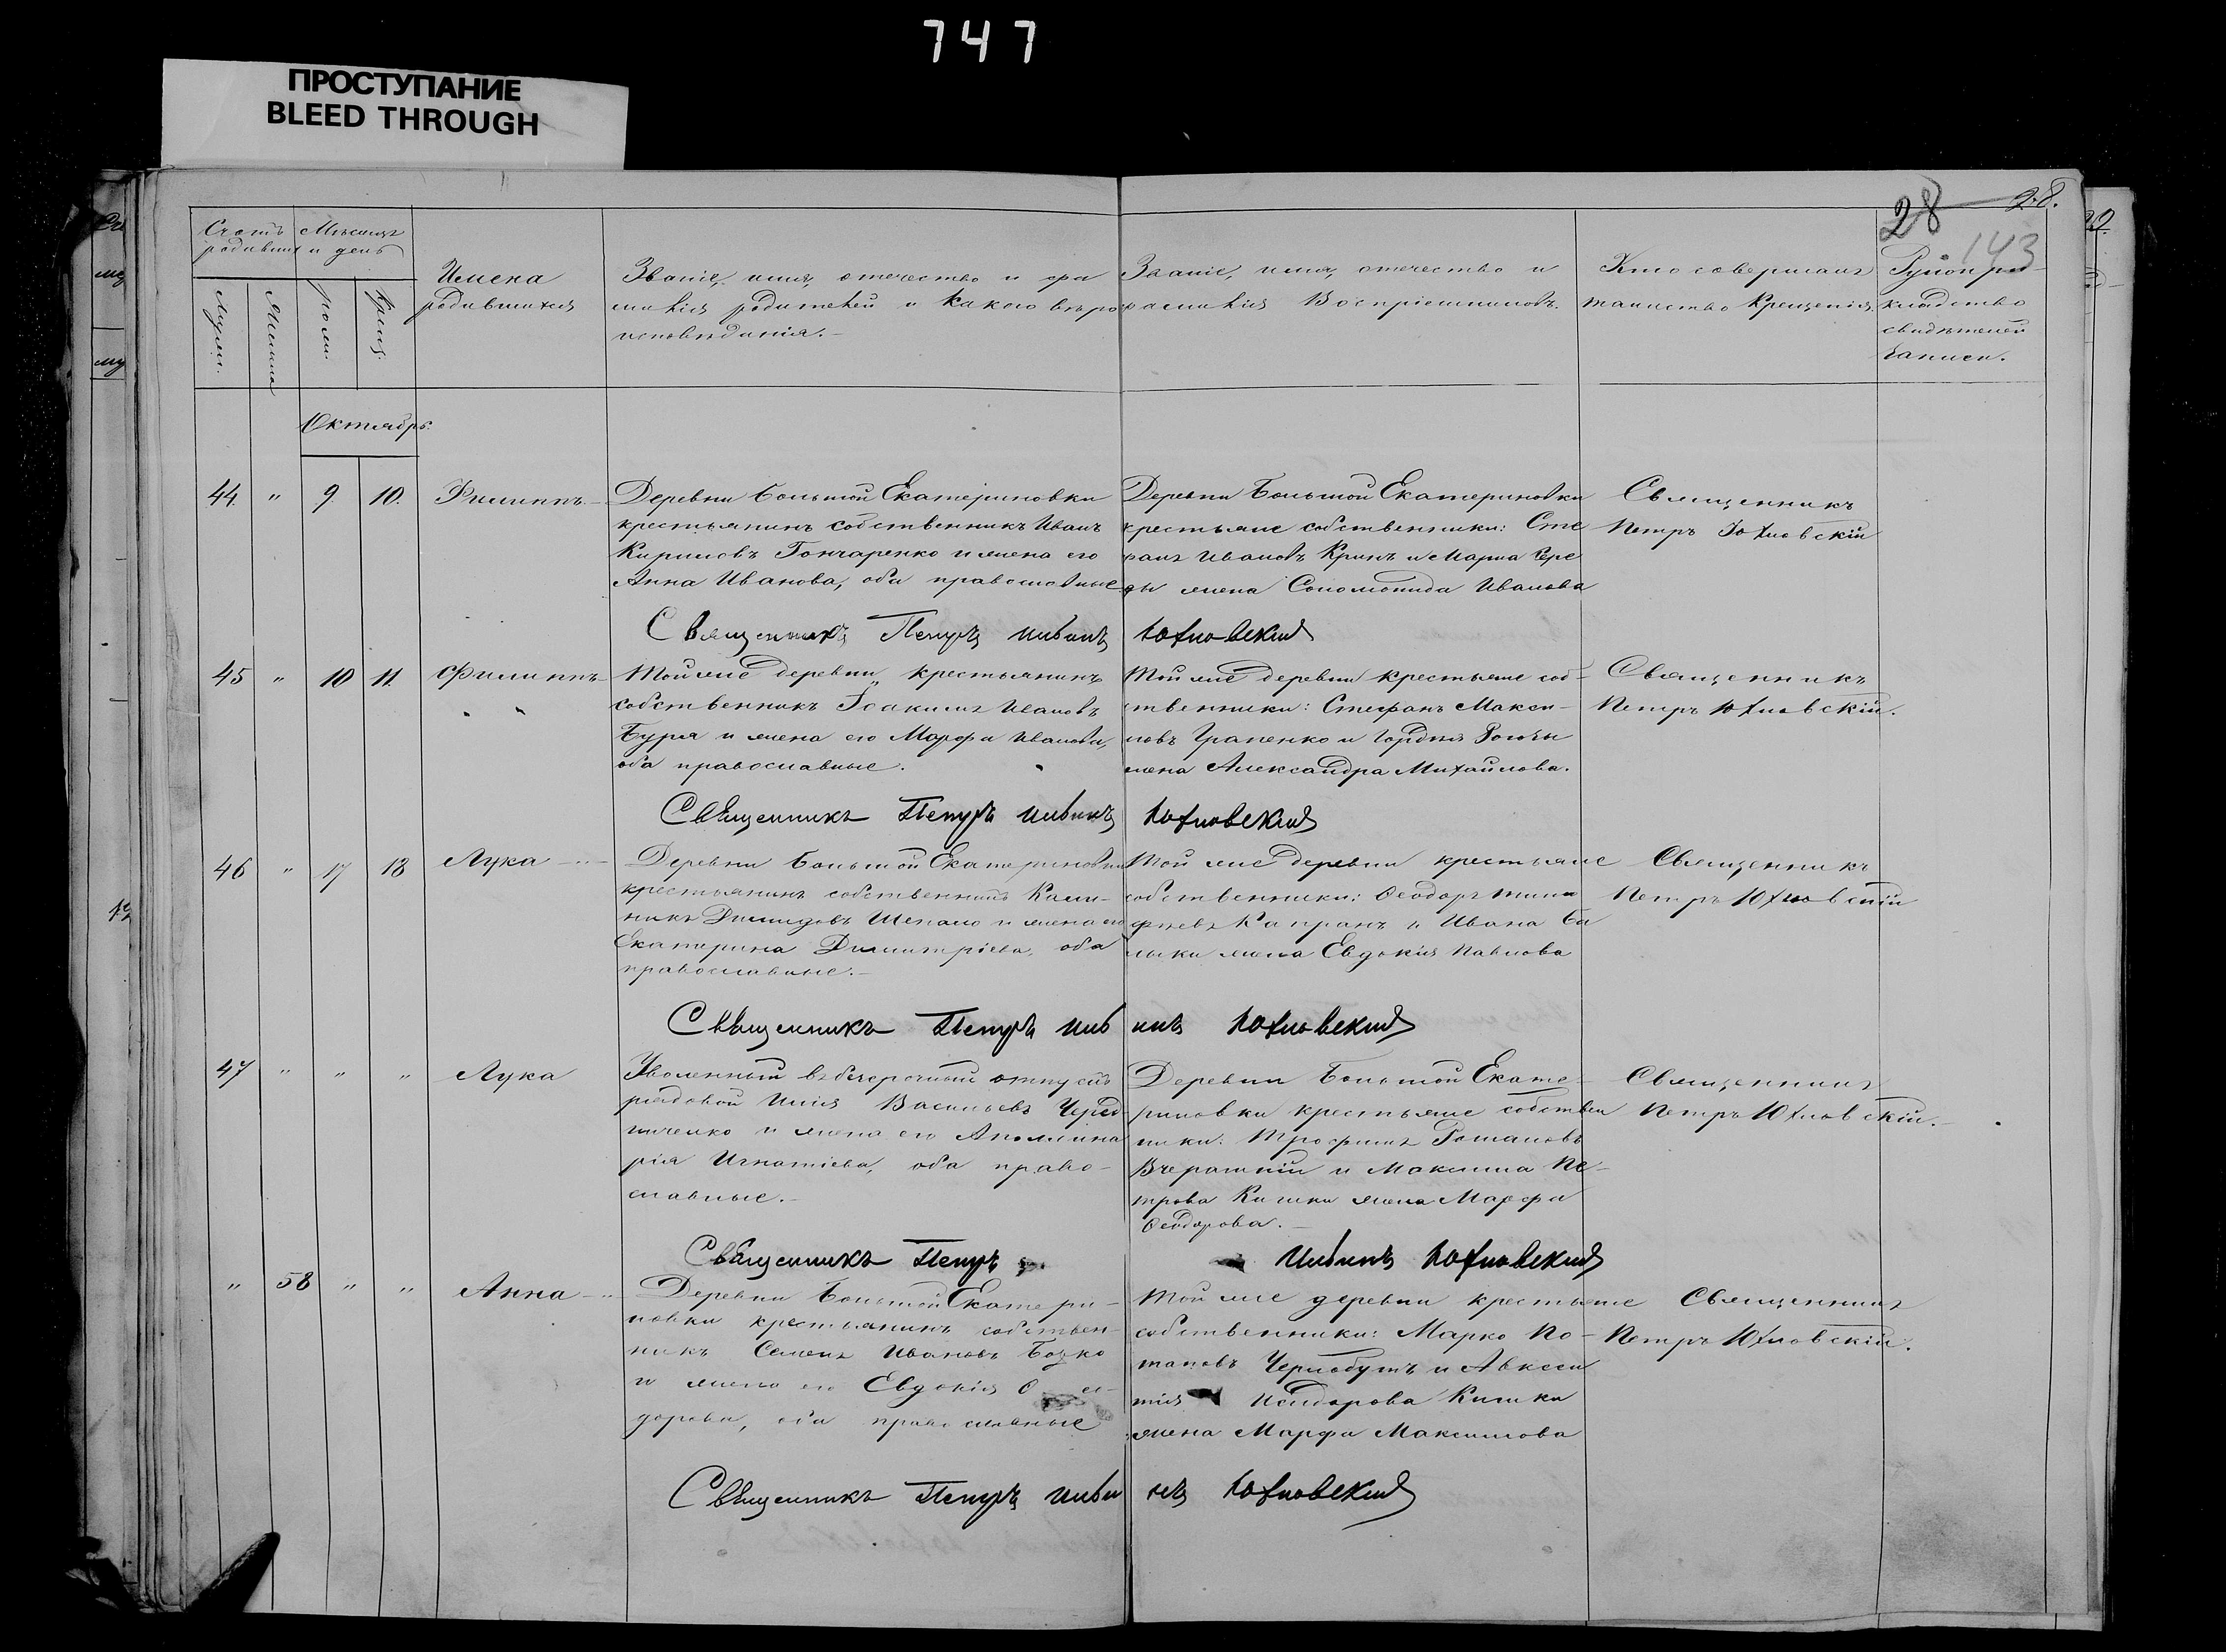 747
ПРОСТУПАНИЕ
BLEED THROUGH
28 28.
143
Счетъ родившихся
Мѣсяцъ и день
Мужск.
Женска
Рожд.
Крещ.
Имена родившихся
Званіе, имя, отечество и фа
милія родителей и какого вѣро
исповѣданія.
Званіе, имя, отечество и
фамилія Воспріемниковъ.
Кто совершалъ
таинство Крещенія.
Рукопри
кладство
свидѣтелей
записи.
Октябрь.
44. " 9. 10. Филиппъ.
Деревни Большой Екатериновки
крестьянинъ собственникъ Иванъ
Кириловъ Гончаренко и жена его
Анна Иванова, оба православные
Деревни Большой Екатериновки
крестьяне собственники: Сте
фанъ Ивановъ Кринъ и Марка Сере
ды жена Соломонида Иванова
Священникъ
Петръ Юхновскій
Священникъ Петръ Ивинъ Юхновский
45 " 10 11. Филиппъ
Той же деревни, крестьянинъ
собственникъ Іоакимъ Ивановъ
Буря и жена его Марфа Иванова,
оба православные.
Той же деревни крестьяне соб-
ственники: Стефанъ Макси-
мовъ Грапенко и Гордея
жена Александра Михайлова.
Священникъ
Петръ Юхновскій.
Священникъ Петръ Ивинъ Юхновский
46 " 17 18 Лука
Деревни Большой Екатериновки
крестьянинъ собственникъ Кали-
никъ Димидовъ и жена его
Екатерина Димитріева, оба
православные.
Той же деревни крестьяне
собственники: Ѳеодоръ Тимо
феевъ Капранъ и Ивана Ба
лыки жена Евдокія Павлова
Священникъ
Петръ Юхновскій
Священникъ Петръ Ивинъ Юхновский
47 " " " Лука
Уволенный въ безсрочный отпускъ
рядовой Илія Васильевъ Черед
ниченко и жена его Аполлина
рія Игнатіева, оба право-
славные.
Деревни Большой Екате-
риновки крестьяне собствен
ники: Трофимъ Романовъ
Вчерашній и Максима Пе-
трова Кишки жена Марфа
Ѳеодорова.
Священникъ
Петръ Юхновскій.
Священникъ Петръ Ивинъ Юхновский
" 58 " " Анна
Деревни Большой Екатери-
новки крестьянинъ собствен-
никъ Семенъ Ивановъ Бозко
и жена его Евдокія Ѳ ео-
дорова, оба православные
Той же деревни крестьяне
собственники: Марко По-
таповъ Чернобутъ и Авксен
тія Исидорова Кишки
жена Марфа Максимова
Священникъ
Петръ Юхновскій.
Священникъ Петръ Ивинъ Юхновский